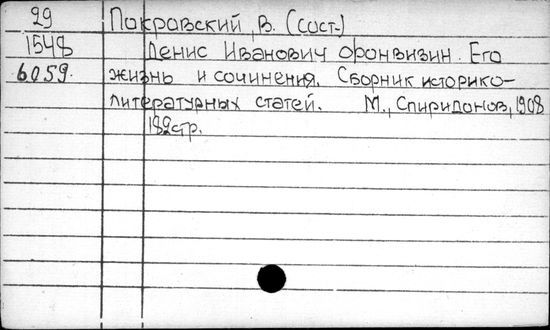 29 Покровский, В. (сост.)
1548 Денис Иванович Фонвизин. Его
6059. жизнь и сочинения. Сборник историко-
литературных статей. М., Спиридонов, 1908
182стр.